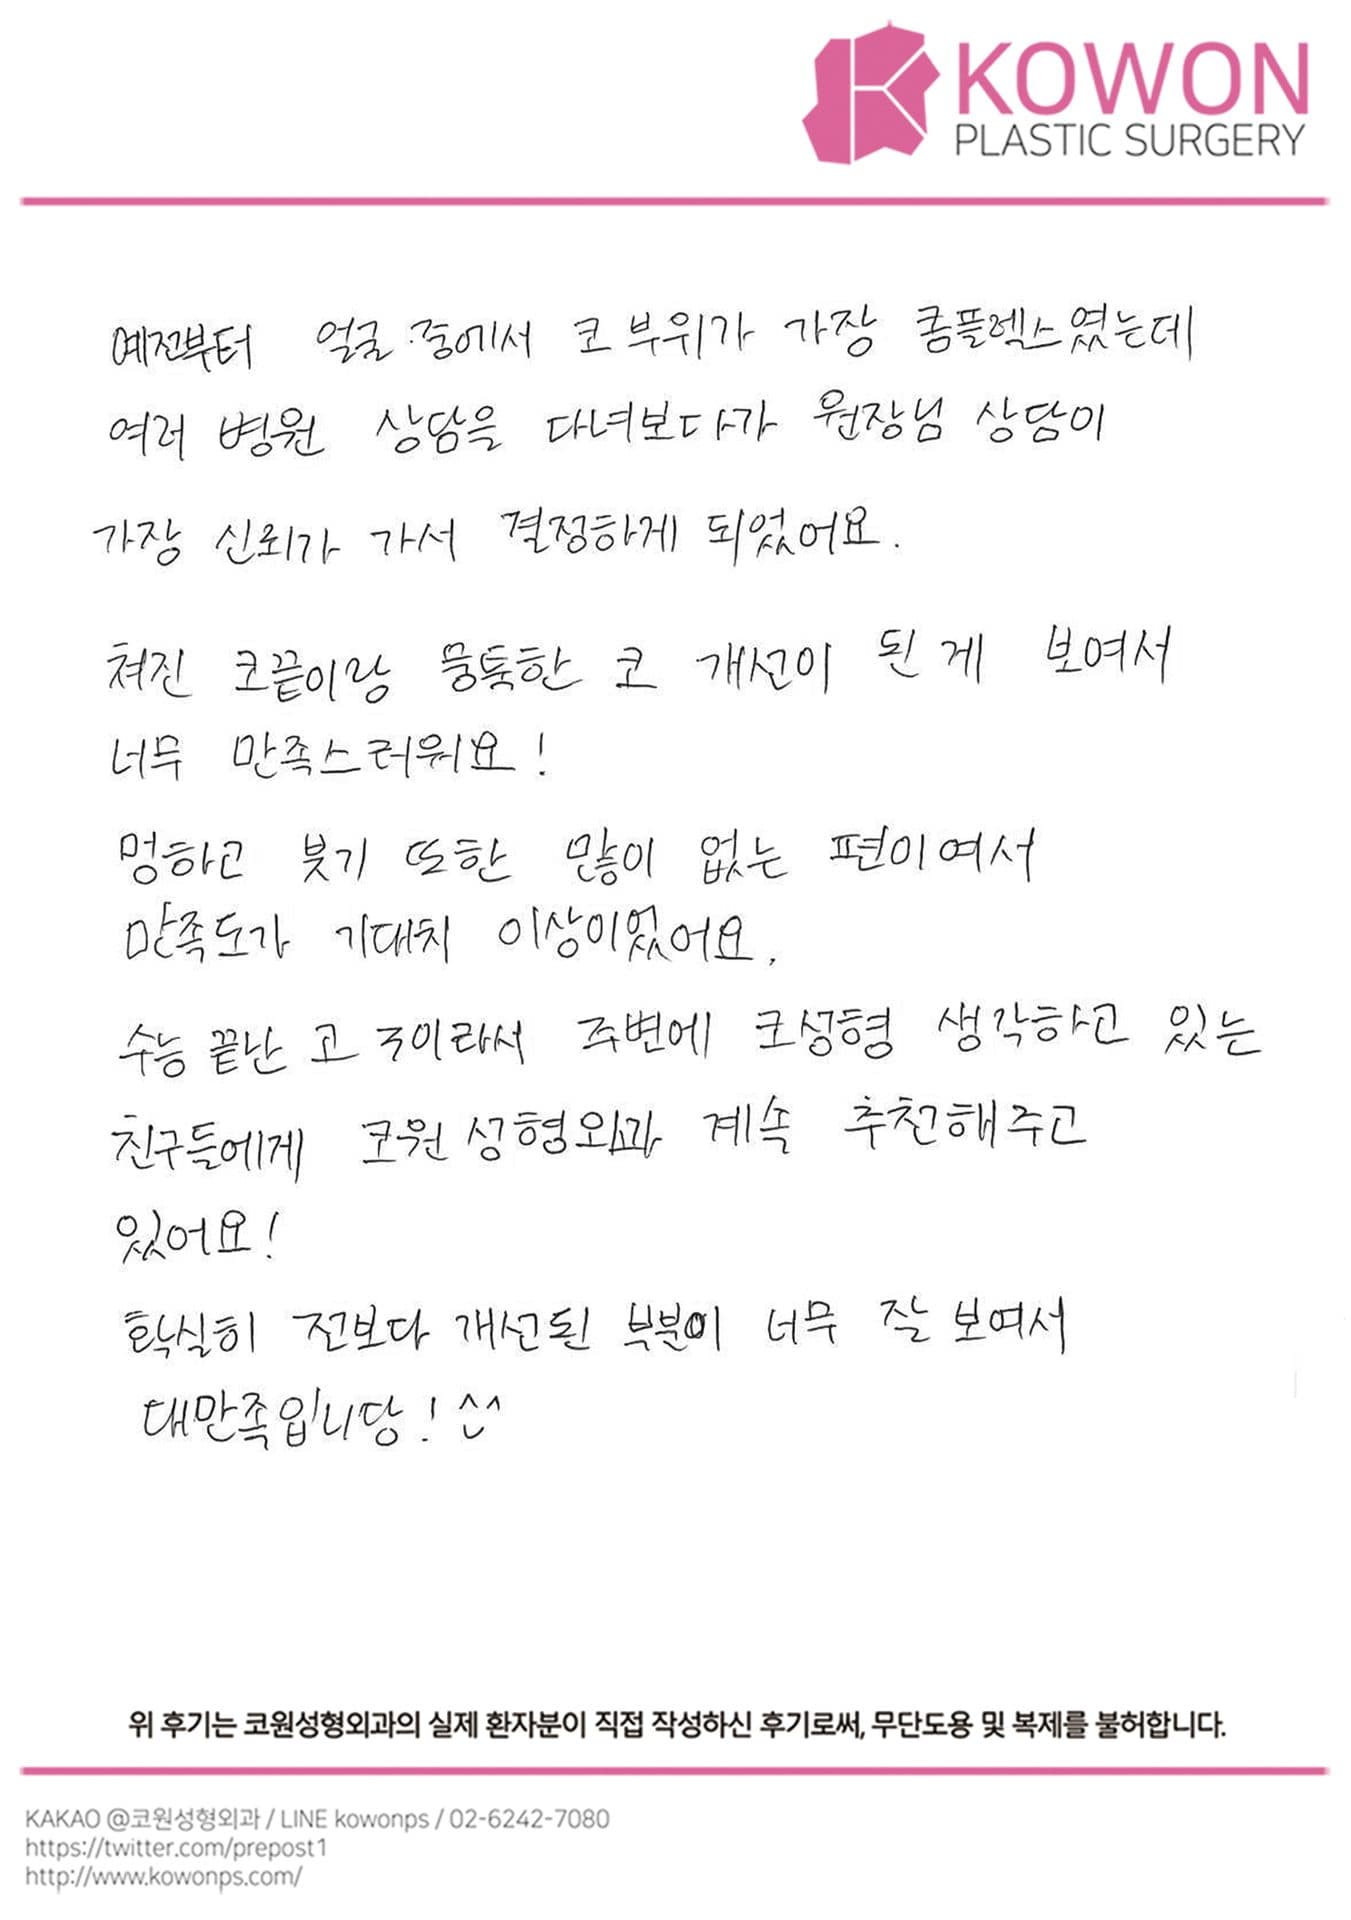 KOWON
PLASTIC SURGERY
예전부터 얼굴 중에서 코 부위가 가장 콤플렉스였는데
여러 병원 상담을 다녀보다가 원장님 상담이
가장 신뢰가 가서 결정하게 되었어요.
쳐진 코끝이랑 뭉툭한 코 개선이 된 게 보여서
너무 만족스러워요!
멍하고 붓기 또한 많이 없는 편이여서
만족도가 기대치 이상이었어요.
수능 끝난 고3이라서 주변에 코성형 생각하고 있는
친구들에게 코원성형외과 계속 추천해주고
있어요!
확실히 전보다 개선된 부분이 너무 잘 보여서
대만족입니당! ^^
위 후기는 코원성형외과의 실제 환자분이 직접 작성하신 후기로써, 무단도용 및 복제를 불허합니다.
KAKAO @코원성형외과 / LINE kowonps / 02-6242-7080
https://twitter.com/prepost1
http://www.kowonps.com/